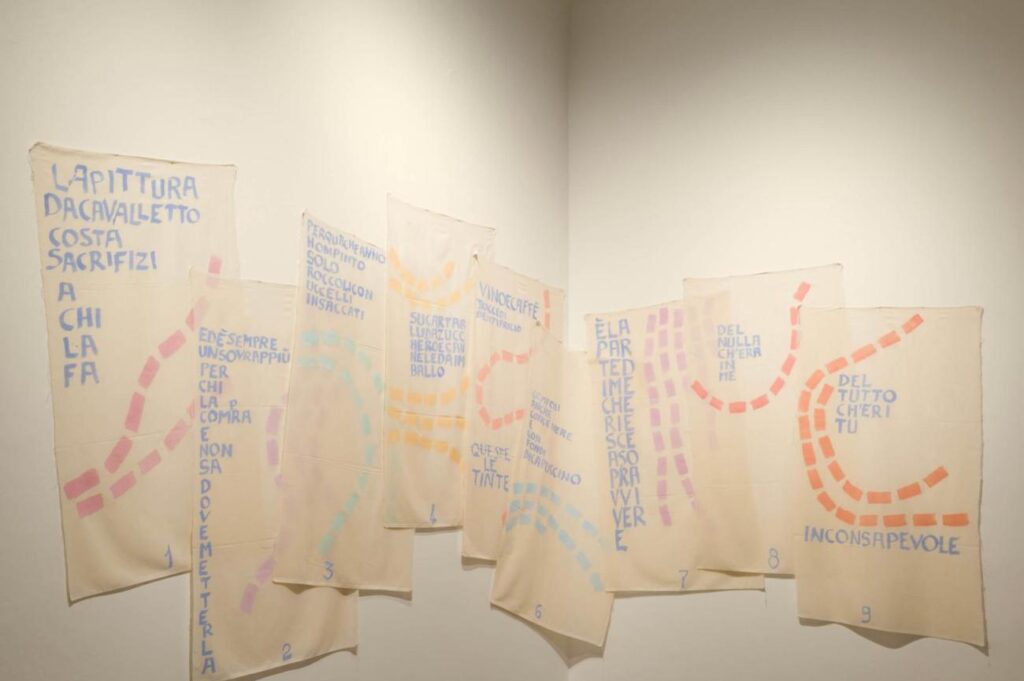 LAPITTURA
DACAVALLETTO
COSTA
SACRIFIZI
A
CHI
LA
FA
1
EDÈSEMPRE
UNSOVRAPPIÙ
PER
CHI
LA
COMPRA
E NON
SA
DOVEMETTERLA
2
SOLO
ROCCOLICON
UCCELLI
INSACCATI
3
SUCARTAB
LUDAZUCC
HEROECAN
NELEDAIM
BALLO
4
VINOECAFFÈ
QUESTE
LE
TINTE
E
CON
FONDI
6
ÈLA
PAR
TED
IME
CHE
RIE
SCE
ASO
PRA
VVI
VER
E
7
DEL
NULLA
CH'ERA
IN
ME
8
DEL
TUTTO
CH'ERI
TU
INCONSAPEVOLE
9